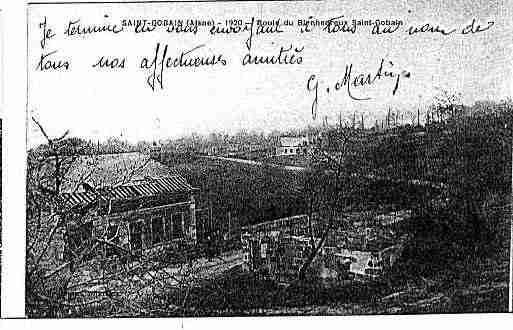 SAINT-GOBAIN (Aisne) - 1920 - Route du Bienheureux Saint-Gobain
Je termine en vous envoyant à tous au nom de
tous nos affectueuses amitiés
G. Martin